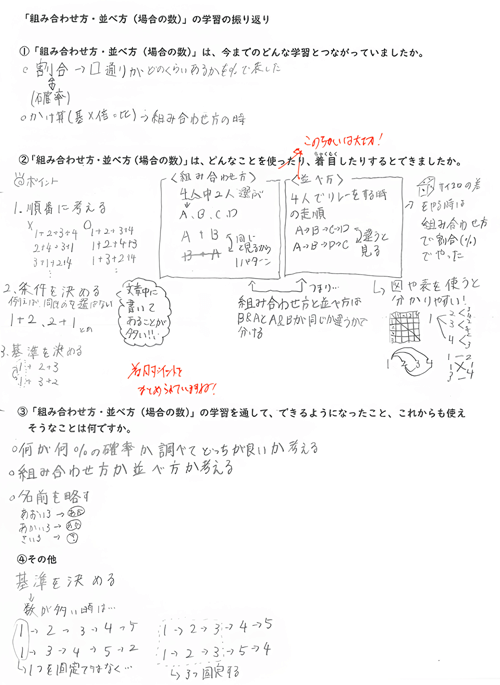 「組み合わせ方・並べ方（場合の数）」の学習の振り返り
①「組み合わせ方・並べ方（場合の数）」は、今までのどんな学習とつながっていましたか。
○割合→□通りがどのくらいあるかを%で表した
(確率)
○かけ算(基×倍=比)→組み合わせ方の時
②「組み合わせ方・並べ方（場合の数）」は、どんなことを使ったり、着目したりするとできましたか。
このちがいは大切!
ポイント
1.順番に考える
1+2+3+4
2+4+3+1
3+1+2+4
1+2+3+4
1+2+4+3
1+3+2+4
2.条件を決める
1+2、2+1
3.基準を決める
1+2+3
1+3+2
文章中に
書いて
あることが
多い!!
<組み合わせ方>
4人中2人選ぶ
A、B、C、D
A+B
B+A
同じ
と見るから
1パターン
<並べ方>
4人でリレーをする時
の走順
A→B→C→D
A→B→D→C
違うと
見る
つまり…
組み合わせ方と並べ方は
B&AとA&Bが同じか違うかで
分ける
サイコロの差
をやる時は
組み合わせ方
で割合(%)
でやった
図や表を使うと
分かりやすい!
まとめられていますね!
③「組み合わせ方・並べ方（場合の数）」の学習を通して、できるようになったこと、これからも使え
そうなことは何ですか。
○何が何%の確率か調べてどっちが良いか考える
○組み合わせ方か並べ方か考える
○名前を略す
あおいろ→あお
あかいろ→あか
④その他
基準を決める
数が多い時は…
1→2→3→4→5
1→3→4→5→2
1つを固定ではなく…
1→2→3→4→5
1→2→3→5→4
3つ固定する